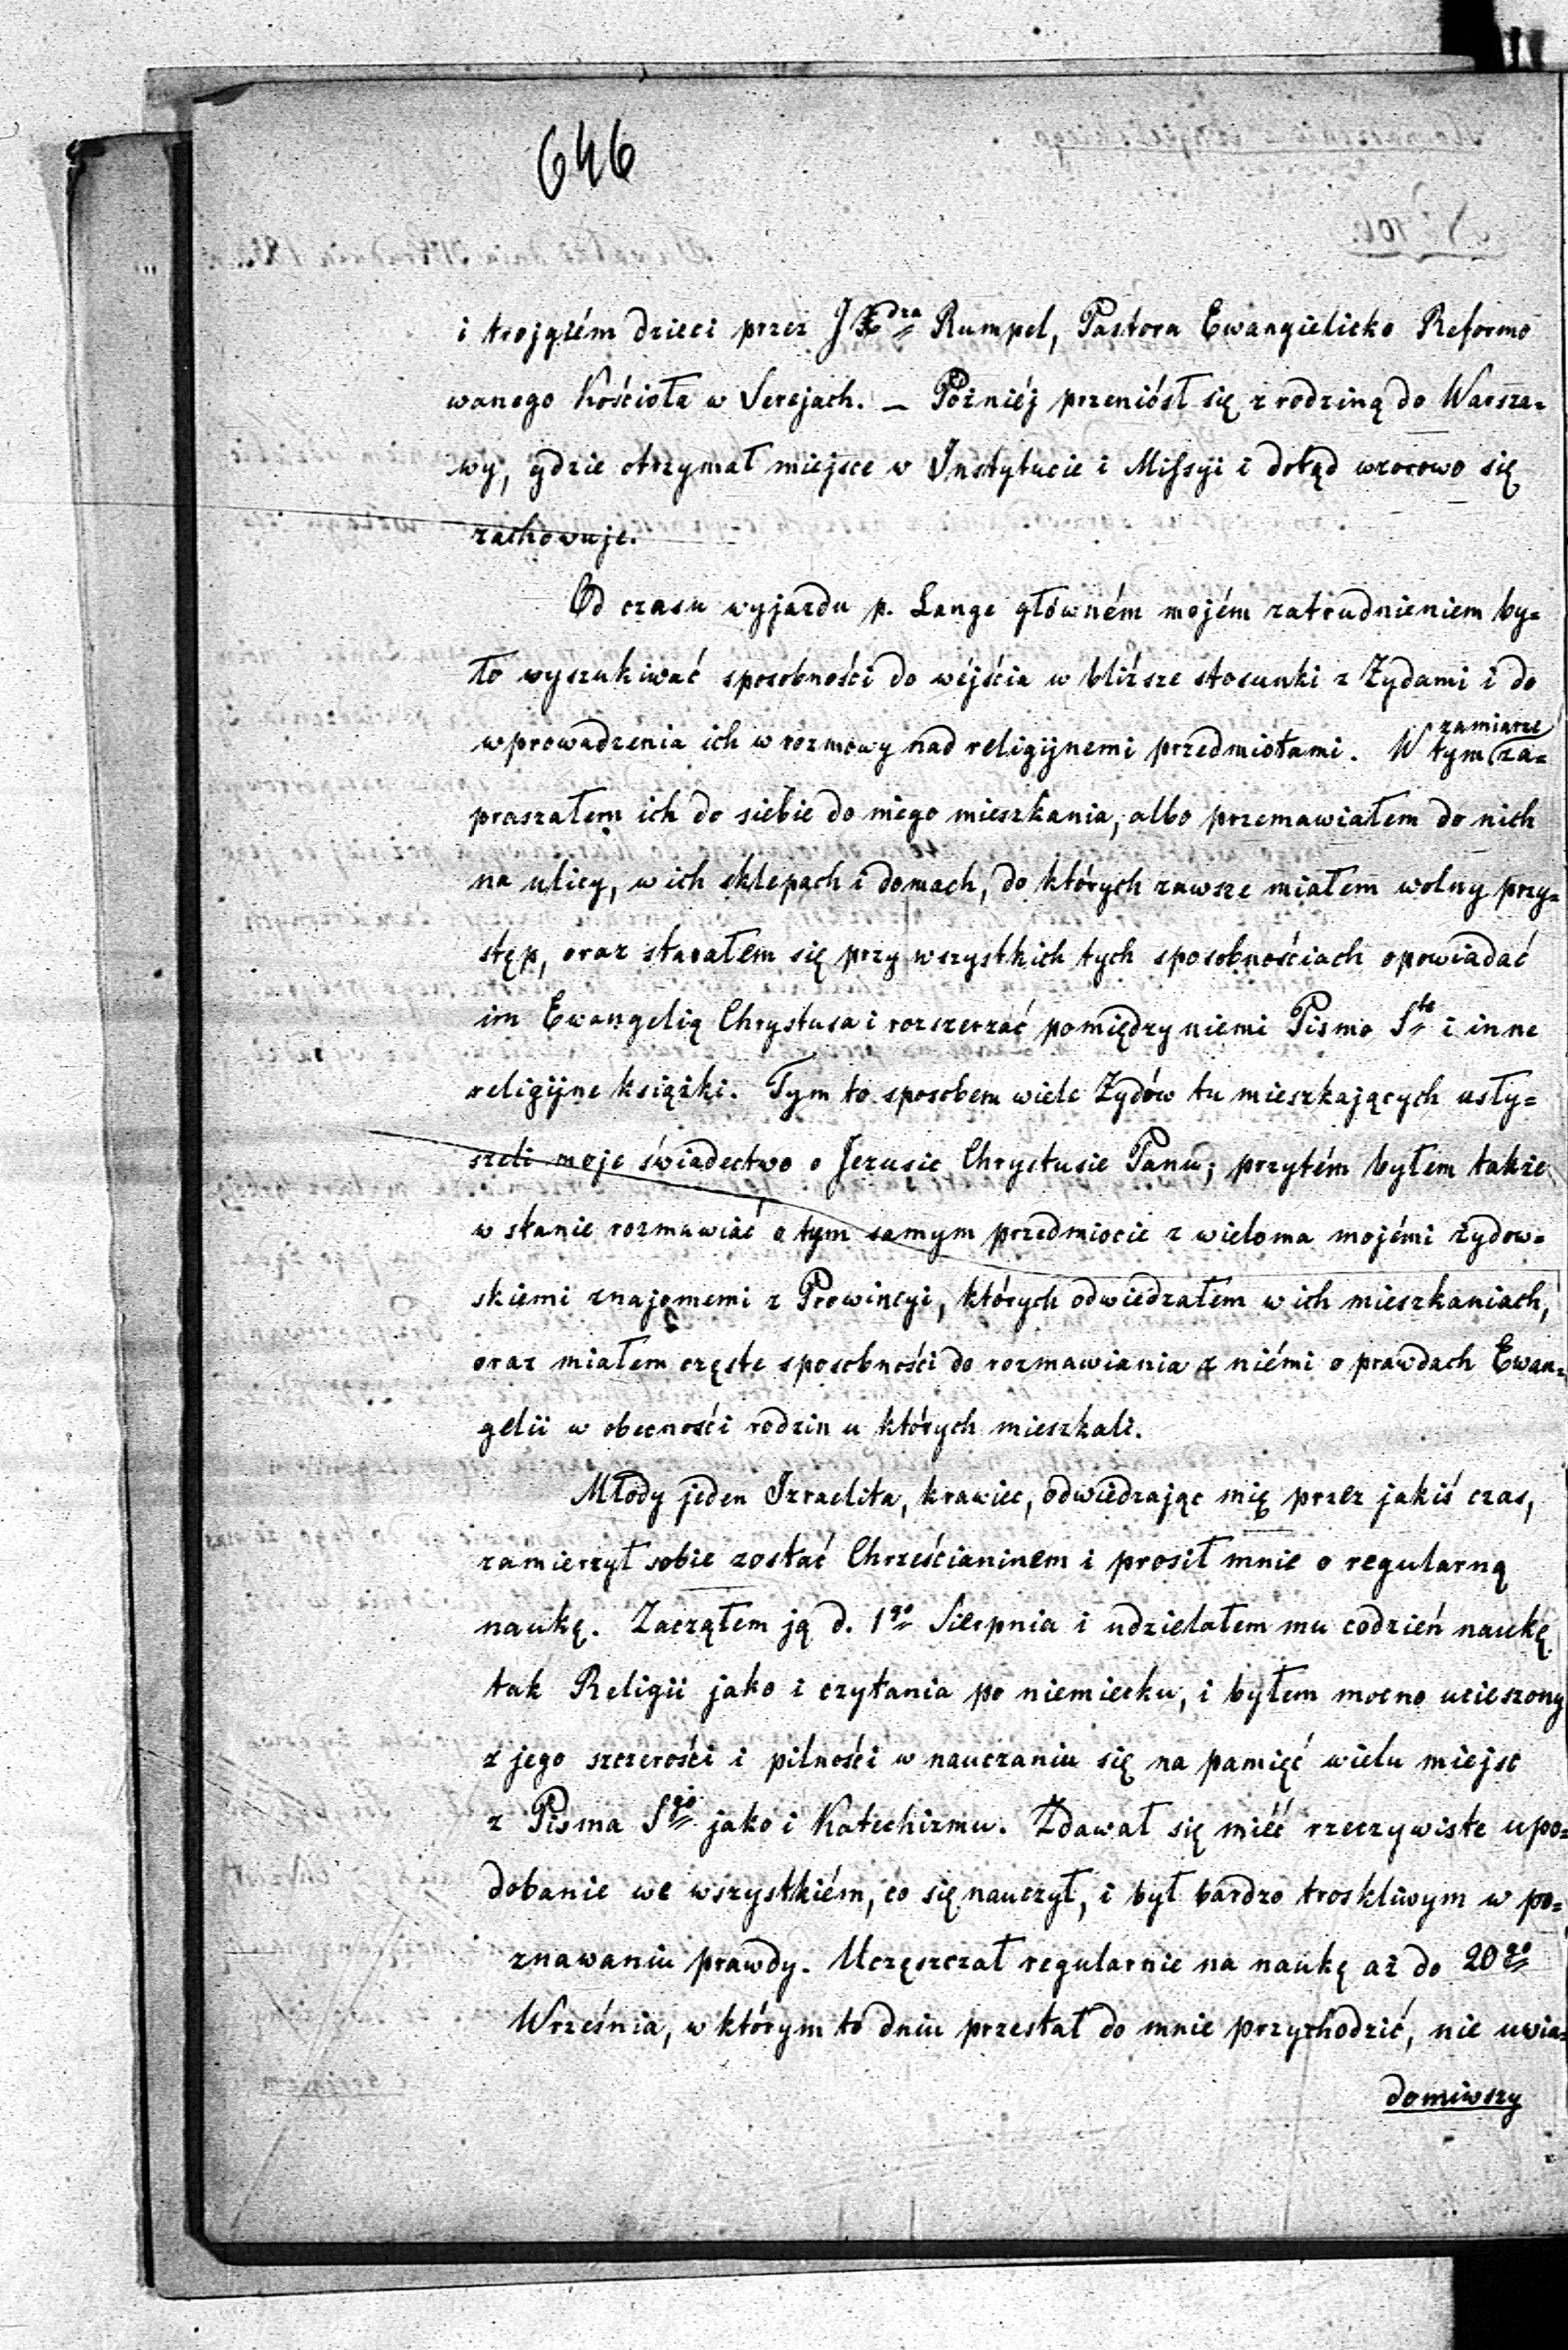 646
i trojgiém dzieci przez JX dza Rumpel, Pastora Ewangielicko Reformo
wanego Kościoła w Serejach. — Poźniéj przeniósł się z rodziną do Warsza-
wy, gdzie otrzymał miejsce w Instytucie i Missyi i dotąd wzorowo się
zachowuje.
Od czasu wyjazdu p. Lange główném mojém zatrudnieniem by-
ło wyszukiwać sposobności do wéjścia w bliższe stosunki z Żydami i do
wprowadzenia ich w rozmowy nad religijnemi przedmiotami. W tym zamiarze za-
praszałem ich do siebie do mego mieszkania, albo przemawiałem do nich
na ulicy, w ich sklepach i domach, do których zawsze miałem wolny przy-
stęp, oraz starałem się przy wszystkich tych sposobnościach opowiadać
im Ewangelią Chrystusa i rozszerzać pomiędzy niemi Pismo Ste i inne
religijne książki. Tym to sposobem wiele Żydów tu mieszkających usły-
szeli moje świadectwo o Jezusie Chrystusie Panu; przytém byłem także
w stanie rozmawiać o tym samym przedmiocie z wieloma mojémi żydow-
skiemi znajomemi z Prowincyi, których odwiedzałem w ich mieszkaniach,
oraz miałem częste sposobności do rozmawiania z niémi o prawdach Ewan-
gelii w obecności rodzin u których mieszkali.
Młody jeden Izraelita, krawiec, odwiedzając mię przez jakiś czas,
zamierzył sobie zostać Chrześcianinem i prosił mnie o regularną
naukę. Zacząłem ją d. 1go Sierpnia i udzielałem mu codzień naukę
tak Religii jako i czytania po niemiecku, i byłem mocno ucieszony
z jego szczerości i pilności w nauczaniu się na pamięć wielu miejsc
z Pisma Sgo jako i Katechizmu. Zdawał się mieć rzeczywiste upo-
dobanie we wszystkiém, co się nauczył, i był bardzo troskliwym w po-
znawaniu prawdy. Uczęszczał regularnie na naukę aż do 20go
Września, w którym to dniu przestał do mnie przychodzić, nie uwia-
domiwszy